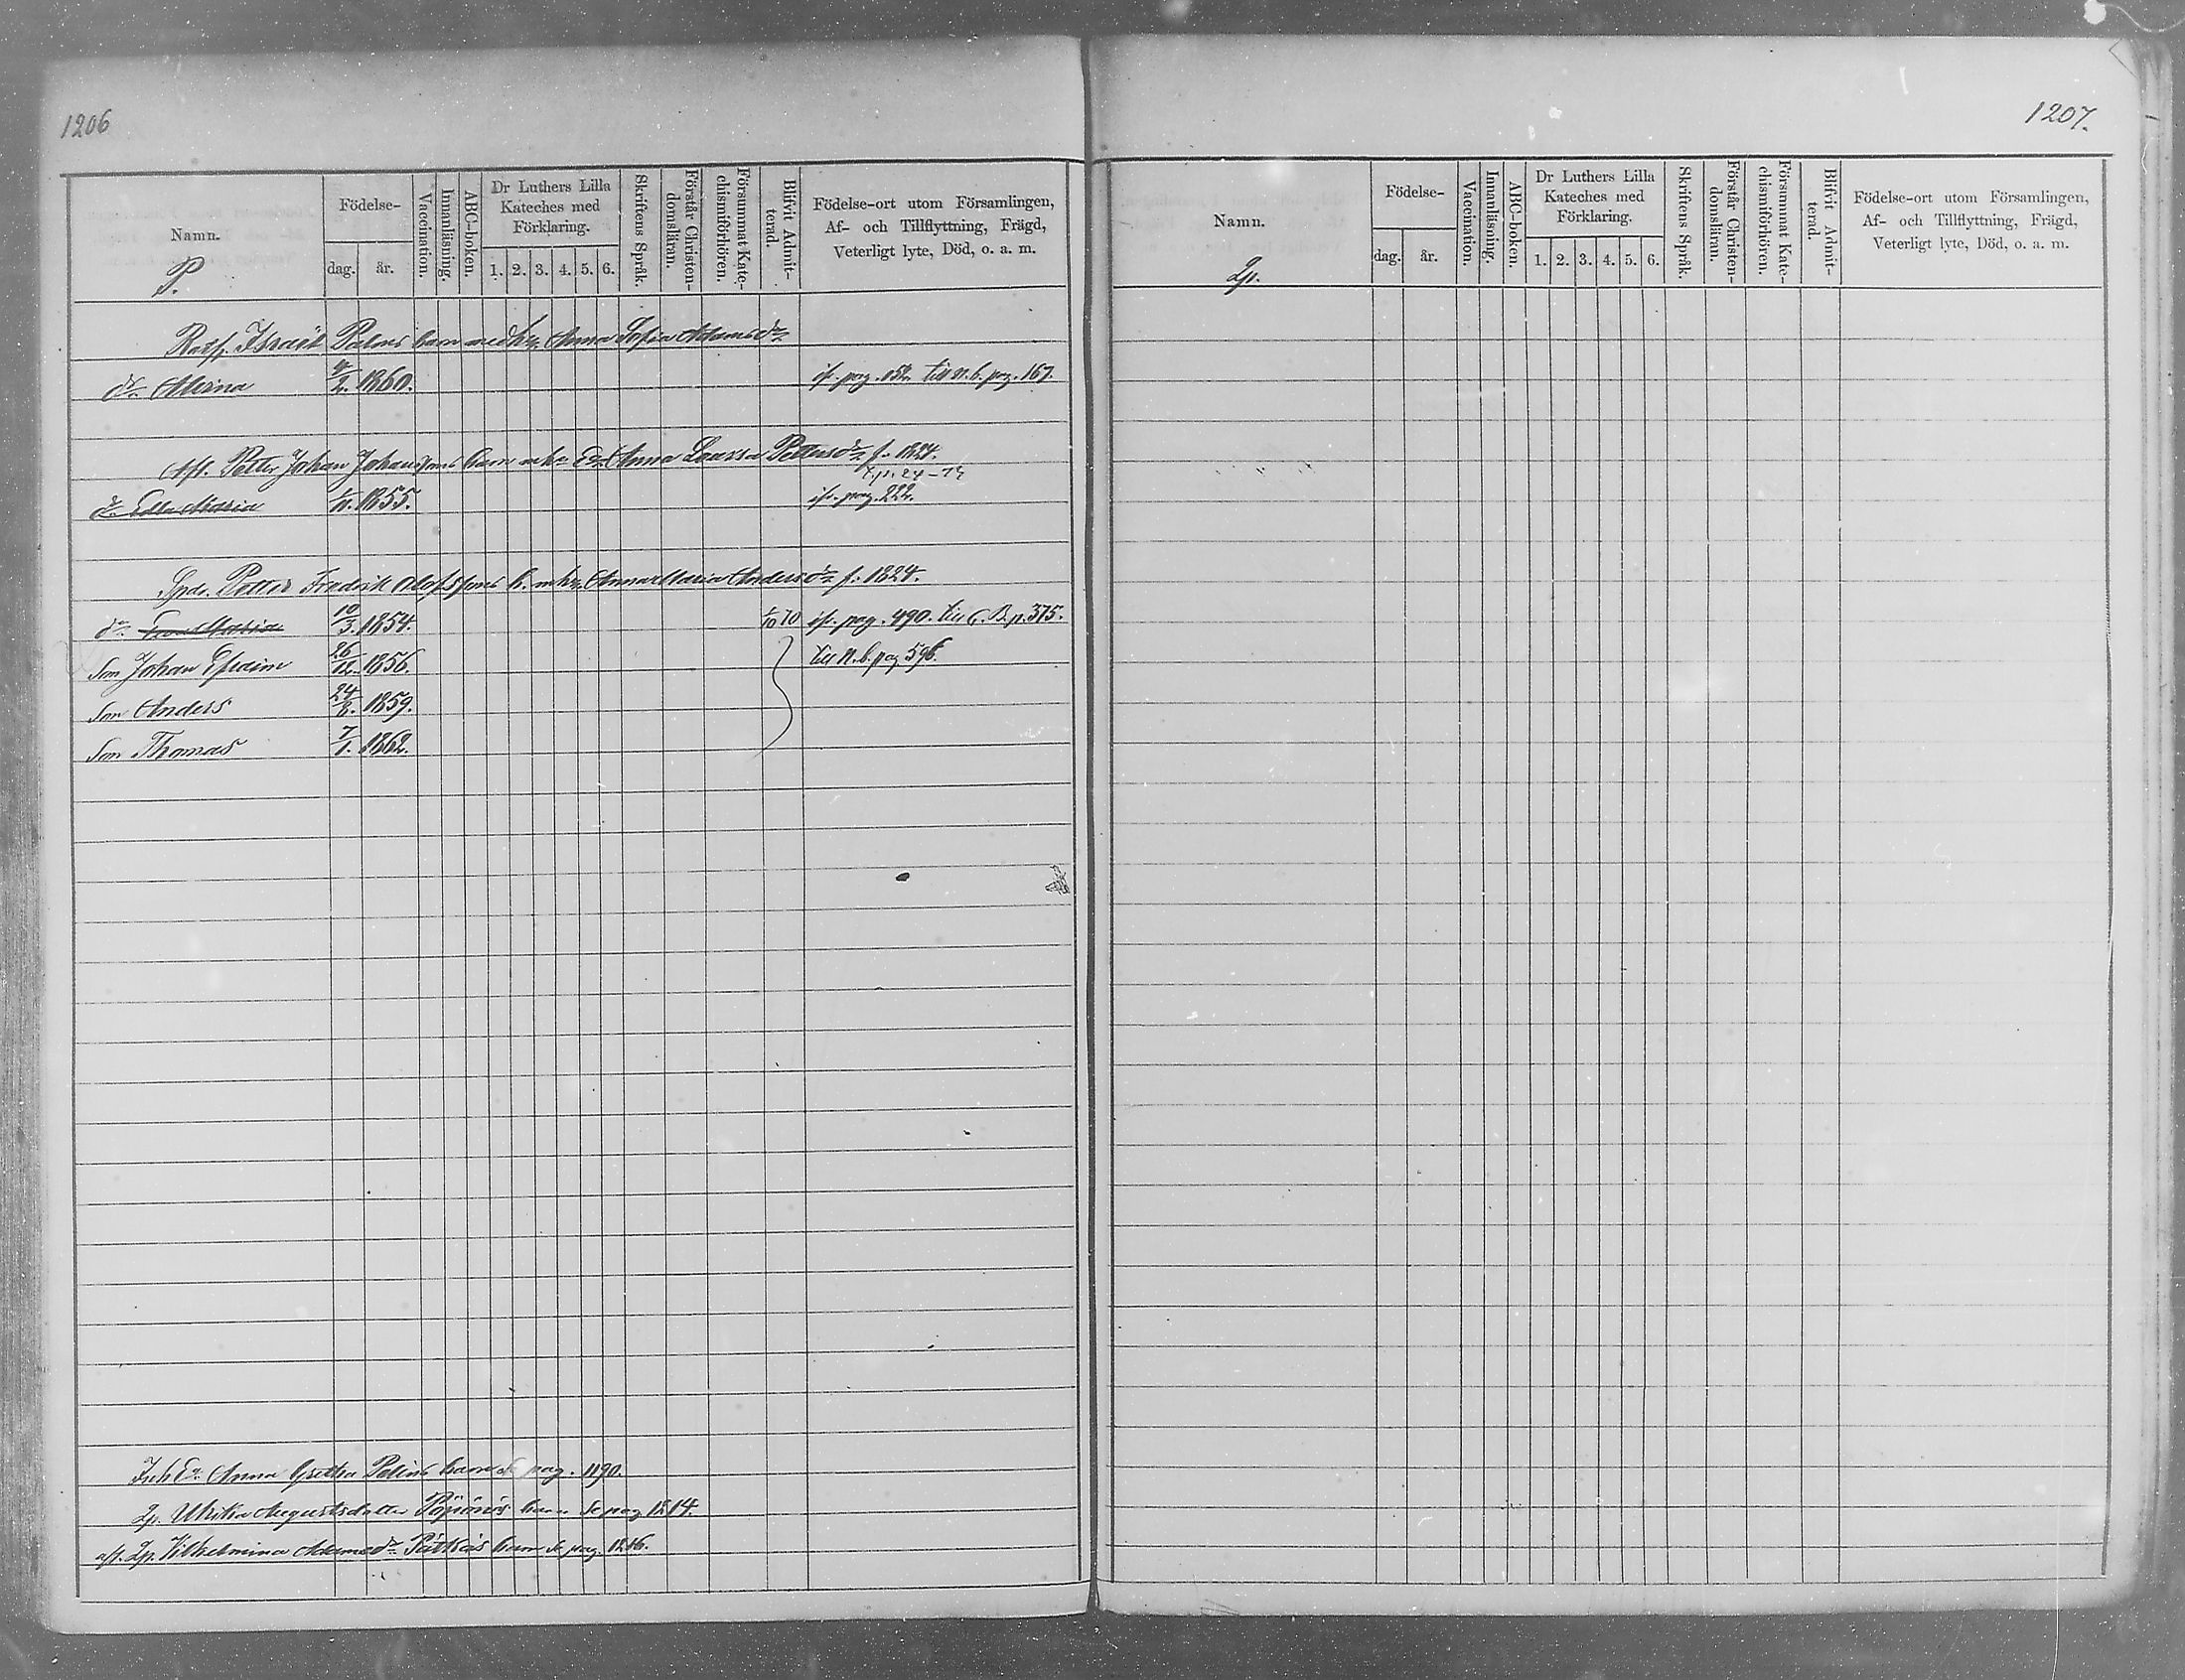 1206
Namn.
P.
Födelse-
dag.
år.
Vaccination.
Innanläsning.
ABC-boken.
Dr Luthers Lilla
Kateches med
Förklaring.
1. 2. 3. 4. 5. 6.
Skriftens Språk.
Förstår Christen-
domsläran.
Försummat Kate-
chismiförhören.
Blifvit Admit-
terad.
Födelse-ort utom Församlingen,
Af- och Tillflyttning, Frägd,
Veterligt lyte, Död, o. a. m.
Israël Palms barn med Anna Sofia Adamsdr
dr 1860. ifr. pag. 152. till n. b. pag. 167.
Petter Johan Johanssons barn Anna Lovisa Pettersdr f. 1824.
dr Edla Maria 1855. ifr. pag. 222.
Petter Fredrik Olofssons b. m. h. Anna Maria Andersdr f. 1824.
dr Maria 10/3. 1854. 1/10 70 ifr. pag. 490. till C. B. p. 375.
Son Johan Efraim 26/12. 1856. till n. b. pag 596.
Son Anders 24/8. 1859.
Son Thomas 7/1. 1862.
Anna Gretha Palins barn se pag. 1190.
Ulrika Augustsdotter barn se pag 1214.
Vilhelmina Adamsdr barn se pag. 1216.
1207.
Namn.
Födelse-
dag.
år.
Vaccination.
Innanläsning.
ABC-boken.
Dr Luthers Lilla
Kateches med
Förklaring.
1. 2. 3. 4. 5. 6.
Skriftens Språk.
Förstår Christen-
domsläran.
Försummat Kate-
chismiförhören.
Blifvit Admit-
terad.
Födelse-ort utom Församlingen,
Af- och Tillflyttning, Frägd,
Veterligt lyte, Död, o. a. m.